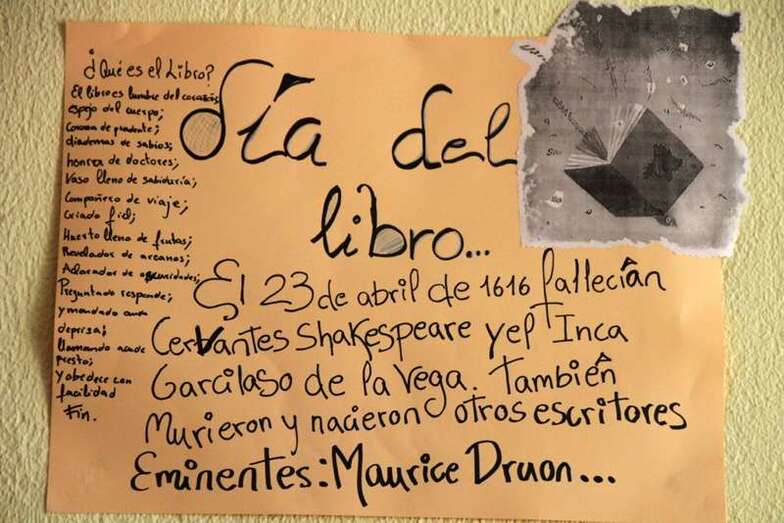 ¿Qué es el Libro?
El libro es lumbre del corazón;
espejo del cuerpo;
Corona de prudente;
diademas de sabios;
honra de doctores;
Vaso lleno de sabiduría;
Compañero de viaje;
Criado fiel;
Huerto lleno de frutas;
Revelador de arcanos;
Aclarador de oscuridades;
Preguntado responde;
y mandado anda
deprisa;
llamando acude
presto;
y obedece con
facilidad
Fin.
Día del
libro...
El 23 de abril de 1616 fallecían
Cervantes Shakespeare y el Inca
Garcilaso de la Vega. también
Murieron y nacieron otros escritores
Eminentes: Maurice Druon...